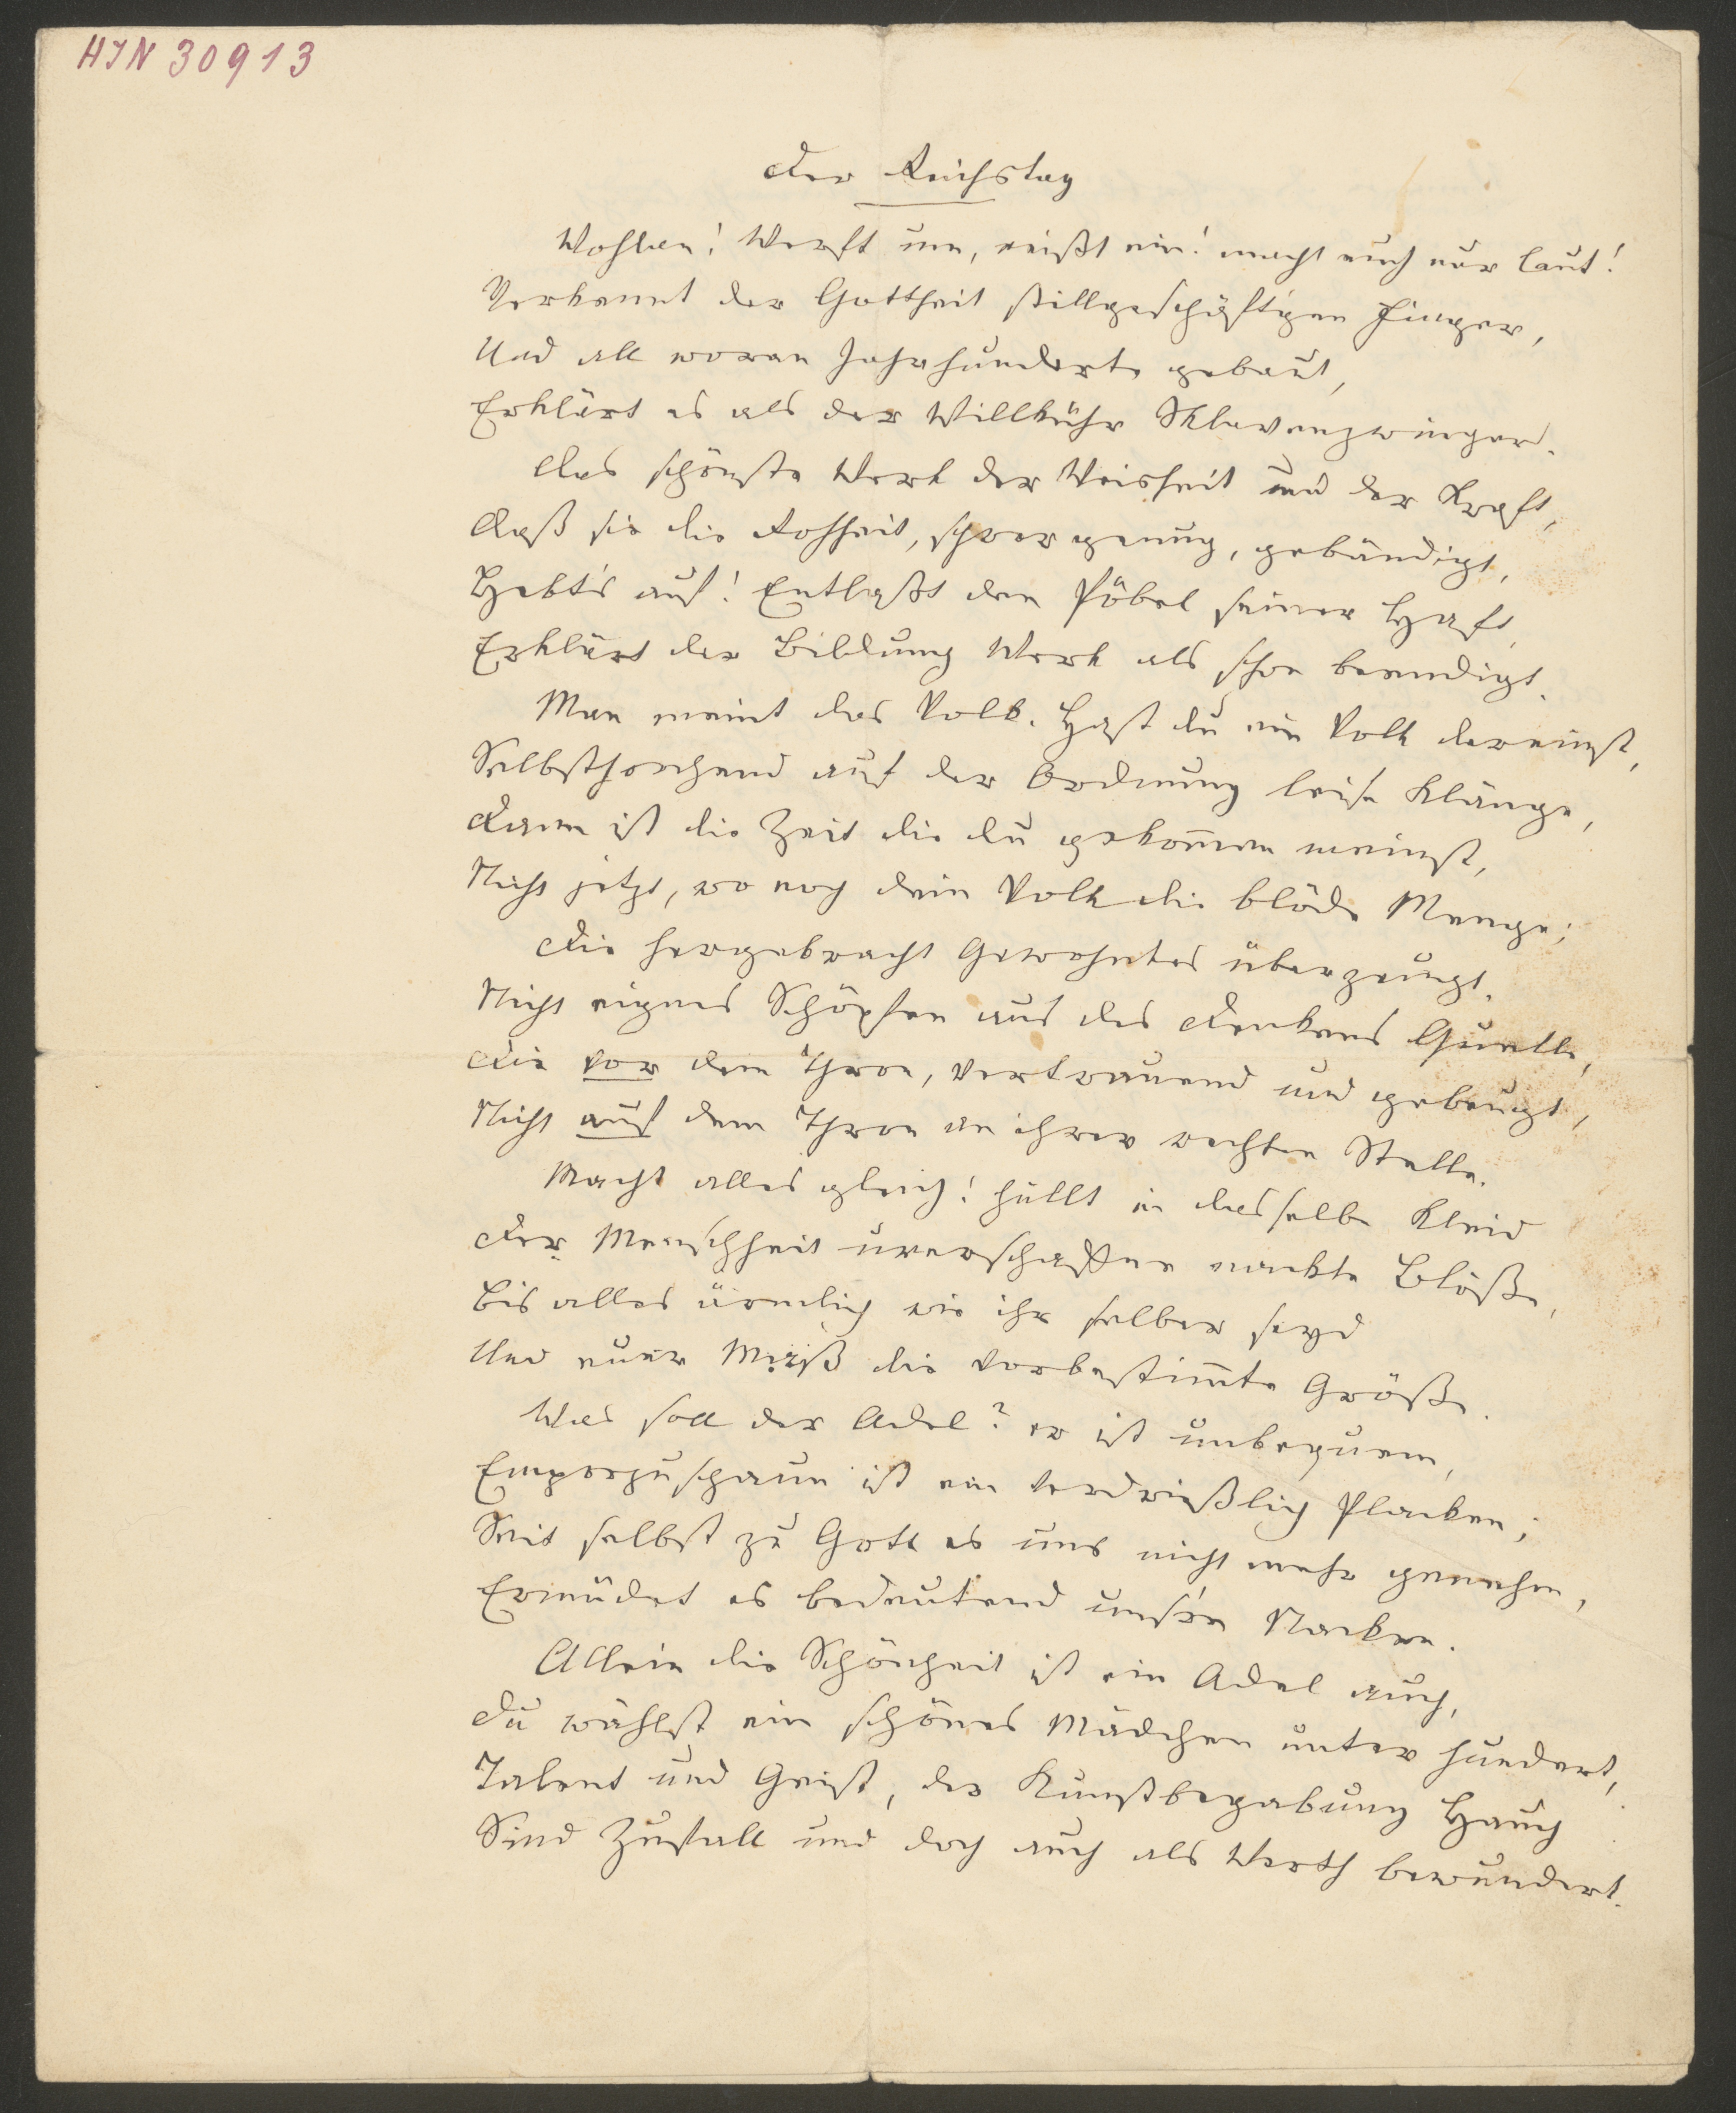 HIN 30913
Der Reichstag
Wohlan! Werft um, reißt ein! macht euch nur laut!
Verkennt der Gottheit stillgeschäftgen Finger,
Und all woran Jahrhunderte gebaut,
Erklärt es als der Willkühr Sklavenzwinger.
Das schönste Werk der Weisheit und der Kraft,
Daß sie die Rohheit, schwer genug, gebändigt,
Hebt's auf! Entlaßt den Pöbel seiner Haft,
Erklärt der Bildung Werk als schon beendigt.
Man meint das Volk. Hast du ein Volk dereinst,
Selbsthorchend auf der Ordnung leise Klänge,
Dann ist die Zeit die du gekom̄en meinst,
Nicht jetzt, wo noch dein Volk die blöde Menge;
Die hergebracht Gewohntes überzeugt,
Nicht eignes Schöpfen aus des Denkens Quelle,
Die vor dem Thron, vertrauend und gebeugt,
Nicht auf dem Thron an ihrer rechten Stelle.
Macht alles gleich! hüllt in dasselbe Kleid
Der Menschheit urerschaffne nackte Blöße,
Bis alles ärmlich wie ihr selber seyd
Und euer Maß die vorbestim̄te Größe.
Was soll der Adel? er ist unbequem,
Emporzuschaun ist ein verdrießlich Placken;
Seit selbst zu Gott es uns nicht mehr genehm,
Ermüdet es bedeutend unsre Nacken.
Allein die Schönheit ist ein Adel auch,
Du wählst ein schönes Mädchen unter hundert,
Talent und Geist, der Kunstbegabung Hauch
Sind Zufall und doch auch als Werth bewundert.